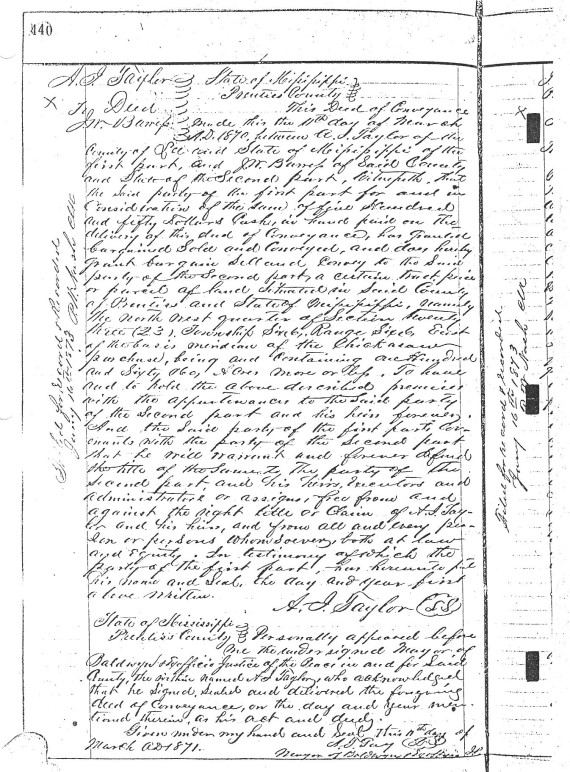 440
A. J. Taylor State of Mississippi
X Prentiss County
To Deed This Deed of Conveyance
J. W. Burress made this the 11th day of March
A.D. 1870, between A. J. Taylor of the
County of and State of Mississippi of the
first part, and J. W. Burress of Said County
and State of the Second part, Witnesseth, that
the said party of the first part for and in
Consideration of the Sum of five Hundred
and fifty Dollars Cash, in hand paid on the
delivery of this deed of Conveyance, has granted
bargained Sold and Conveyed, and does hereby
grant bargain Sell and Convey to the Said
party of the Second part, a certain tract piece
or parcel of land Situated in Said County
of Prentiss and State of Mississippi, namely
the North West quarter of Section twenty
three (23), Township Six, Range Six, East
of the basis meridian of the Chickasaw
purchase, being and Containing one Hundred
and Sixty 160, Acres more or less. To have
and to hold the above described premises
with the appurtenances to the Said party
of the Second part and his heirs forever.
And the Said party of the first part Cov-
enants with the party of the Second part
that he will warrant and forever defend
the title of the Same to the party of the
Second part and his heirs, Executors and
administrators or assigns, free from and
against the right title or Claim of A. J. Tay-
lor and his heirs, and from all and every per-
son or persons whomsoever, both at law
and Equity. In testimony of which the
party of the first part, has hereunto put
his name and Seal, the day and year first
above written.
A. J. Taylor
State of Mississippi
Prentiss County Personally appeared before
me the undersigned Mayor of
Baldwyn & Exofficio Justice of the Peace in and for Said
County, the within named A. J. Taylor, who acknowledged
that he Signed, Sealed and delivered the foregoing
deed of Conveyance, on the day and year men-
tioned therein, as his act and deed.
Given under my hand and Seal, this 11th day of
March AD 1871.
Mayor of Baldwyn & Exofficio J.P.
Filed for Record & Recorded
16th 1873
X
Filed for record & recorded
16th 1873